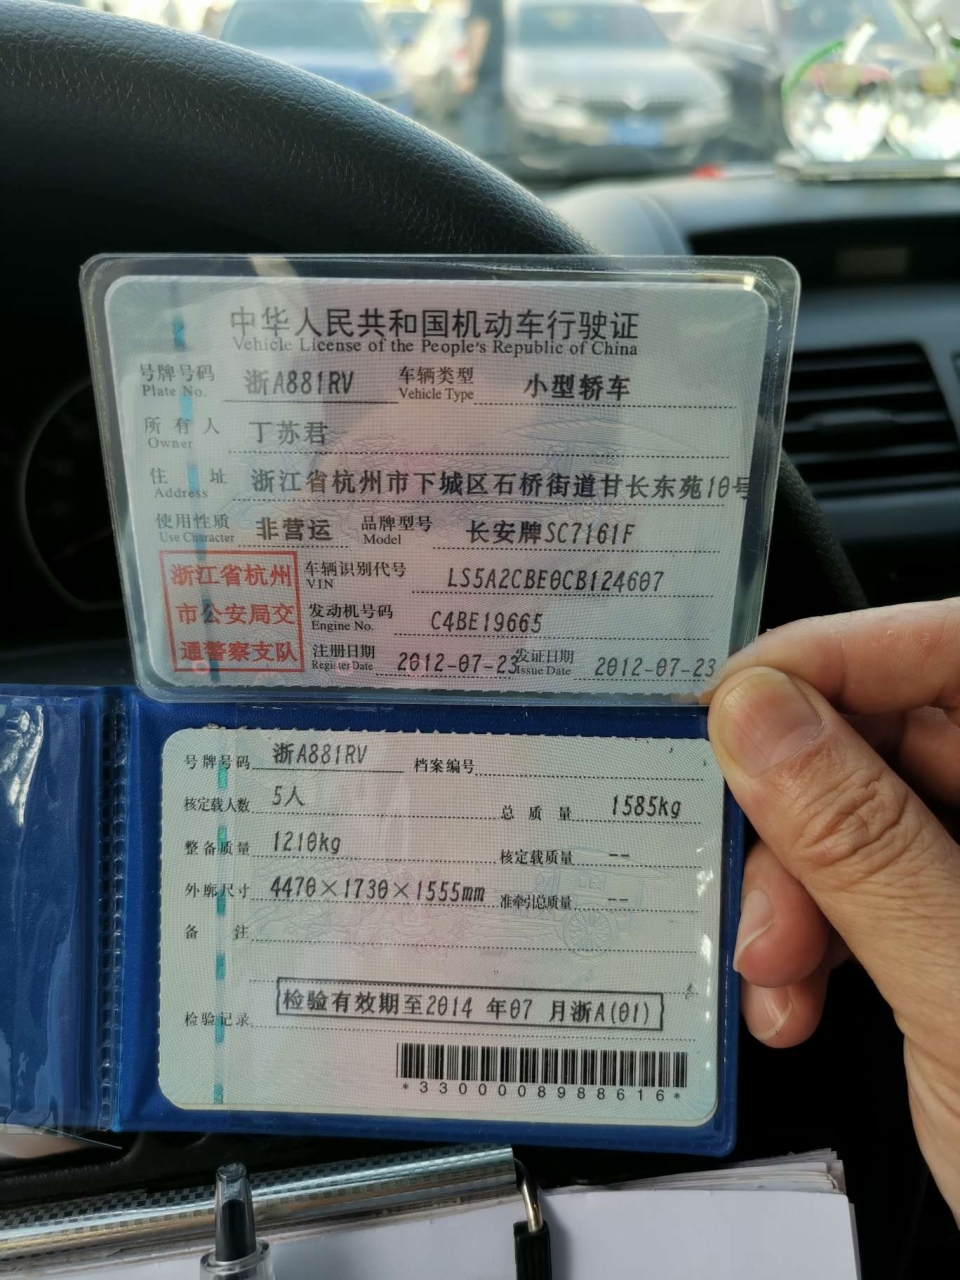 中华人民共和国机动车行驶证
Vehicle License of the People's Republic of China
号牌号码 浙A881RV 车辆类型 小型轿车
Plate No. Vehicle Type
所有人 丁苏君
Owner
住址 浙江省杭州市下城区石桥街道甘长东苑10号
Address
使用性质 非营运 品牌型号 长安牌SC7161F
Use Character Model
浙江省杭州
市公安局交
通警察支队
车辆识别代号 LS5A2CBE0CB124607
VIN
发动机号码 C4BE19665
Engine No.
注册日期 2012-07-23 发证日期 2012-07-23
Register Date Issue Date
号牌号码 浙A881RV 档案编号
核定载人数 5人 总质量 1585kg
整备质量 1210kg 核定载质量 --
外廓尺寸 4470×1730×1555mm 准牵引总质量 --
备注
检验有效期至2014 年07 月浙A(01)
检验记录
*3300008988616*